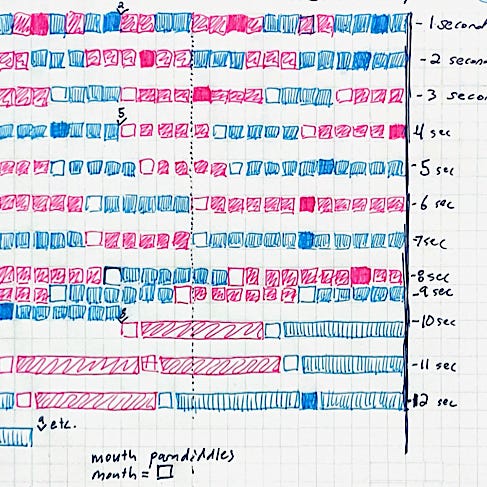 2
- 1 second
- 2 secon
- 3 secon
5
4 sec
-5 sec
-6 sec
-7sec
-8sec
-9sec
8
-10sec
-11 sec
-12 sec
9 etc.
mouth paradiddles
month = □